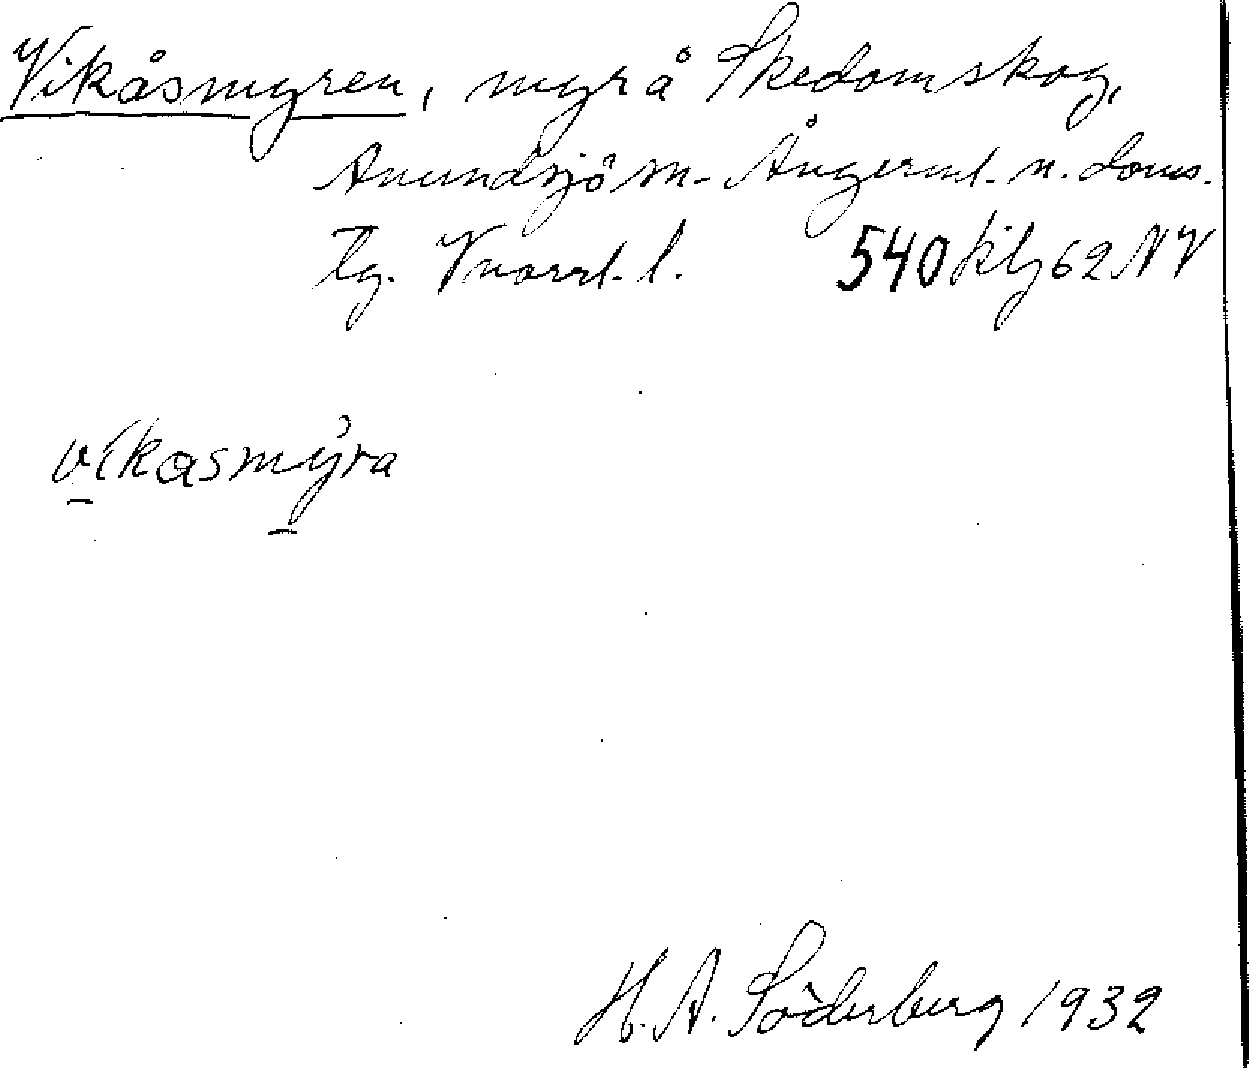 Vikåsmyren, myr å Skedomskog,
Anundsjö sn. Ångerml. n. doms.
tg. Vnorrl. l. 540 kbl 62 NV
vikasmýra
H. A. Söderberg 1932